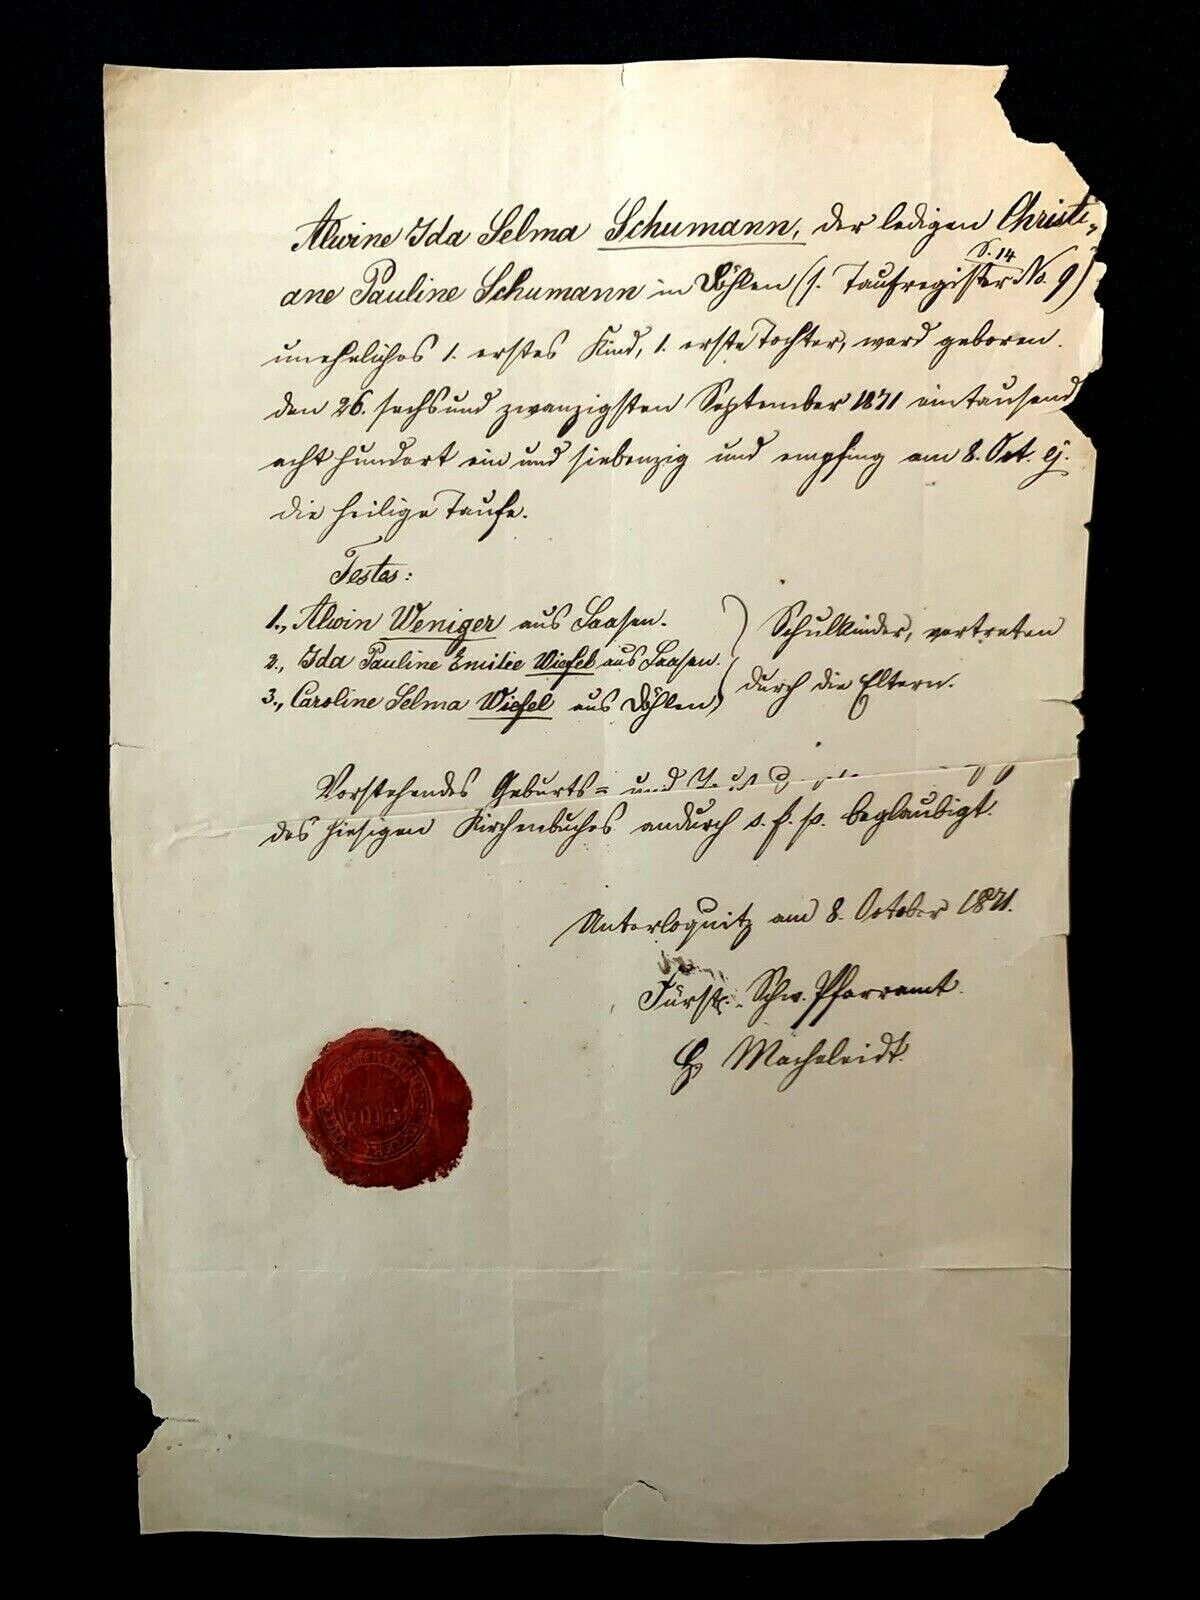 Alwine Ida Selma Schumann, der ledigen Christi-
S. 14
ane Pauline Schumann in Döhlen (s. Taufregister No. 9)
unehliches 1. erstes Kind, 1. erste Tochter, ward geboren
den 26. sechsundzwanzigsten September 1871 eintausend
acht hundert ein und siebenzig und empfing am 8. Oct. ej.
die heilige Taufe.
Testes:
1., Alwin Weniger aus Laasen.
2., Ida Pauline Emilie Wiefel aus Laasen.
3., Caroline Selma Wiefel aus Döhlen
Schulkinder, vertreten
durch die Eltern.
Vorstehendes Geburts- und
des hiesigen Kirchenbuches andurch s. f. p. beglaubigt.
Unterloquitz am 8. October 1871.
Fürstl. Schw. Pfarramt
Macheleidt.